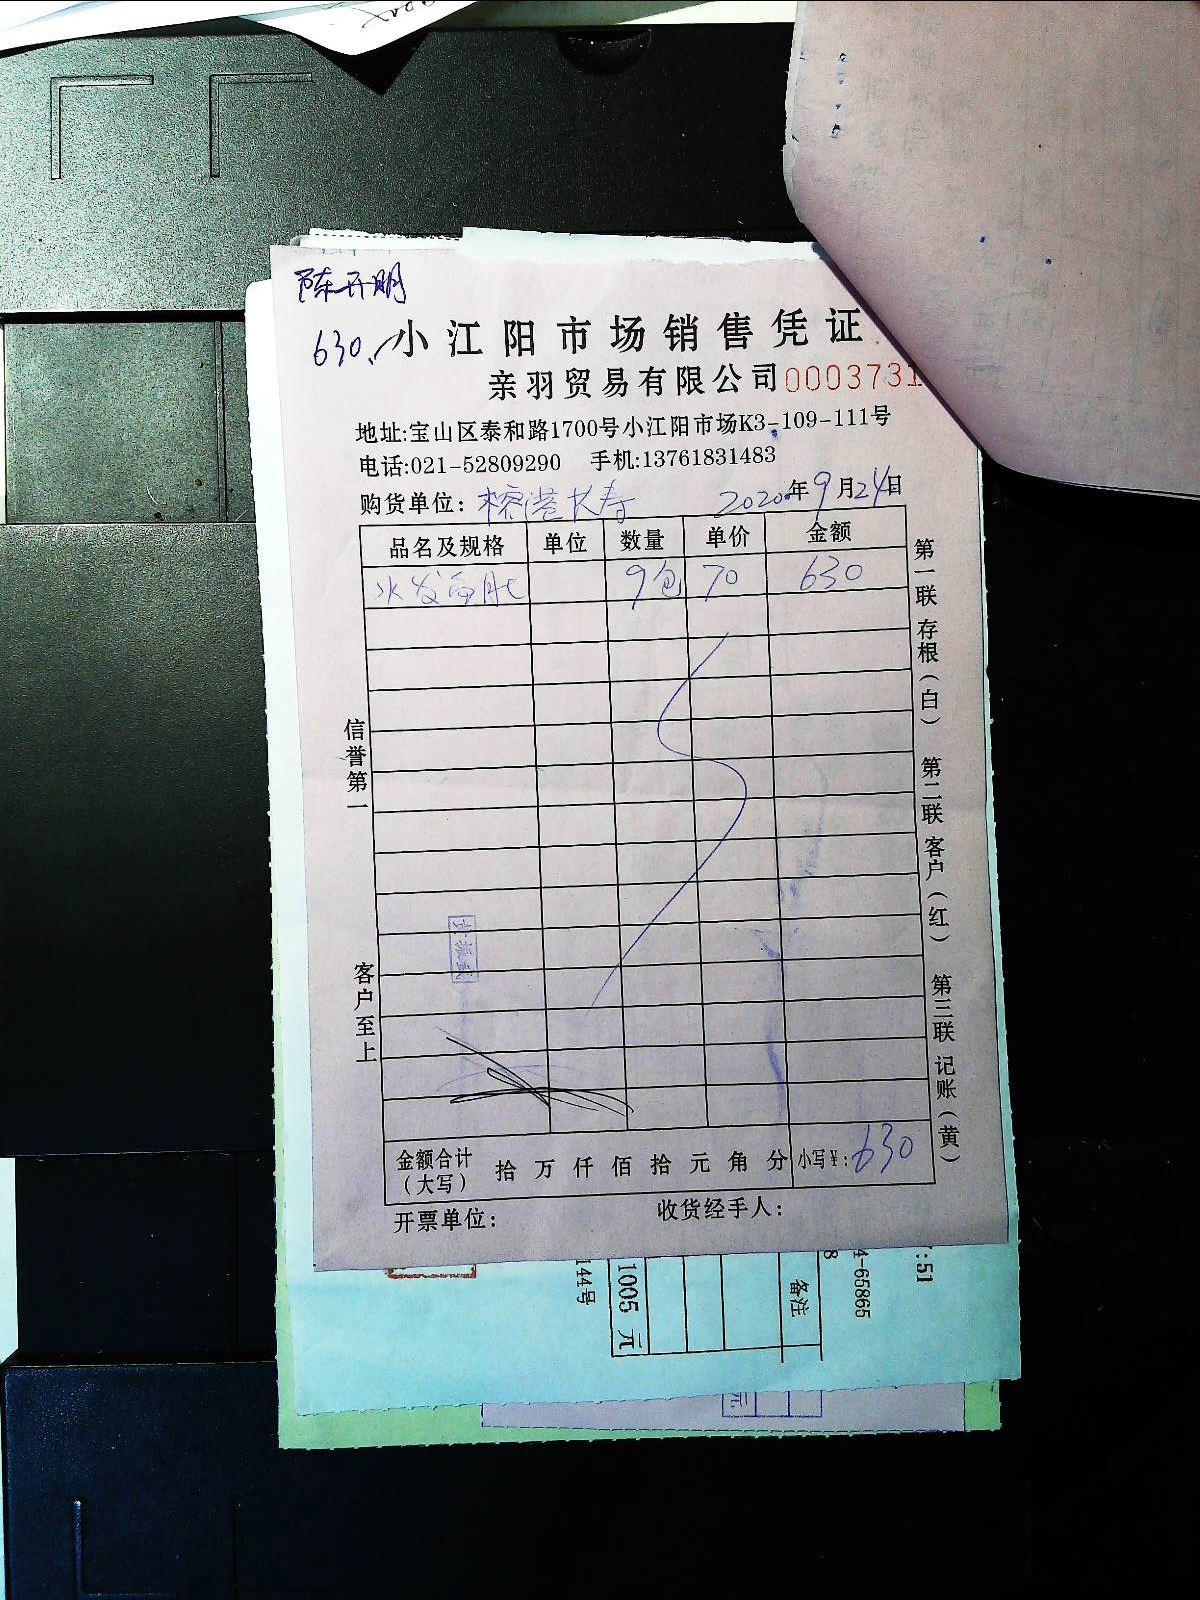 陈开明
630.
小江阳市场销售凭证
亲羽贸易有限公司 0003731
地址:宝山区泰和路1700号小江阳市场K3-109-111号
电话:021-52809290 手机:13761831483
购货单位: 榕港长寿 2020年9月24日
品名及规格 单位 数量 单价 金额
水发 9包 70 630
信誉第一
客户至上
第一联 存根(白) 第二联 客户(红) 第三联 记账(黄)
金额合计(大写) 拾 万 仟 佰 拾 元 角 分 小写¥: 630
开票单位: 收货经手人:
144号
1005 元
备注
4-65865
:51
元